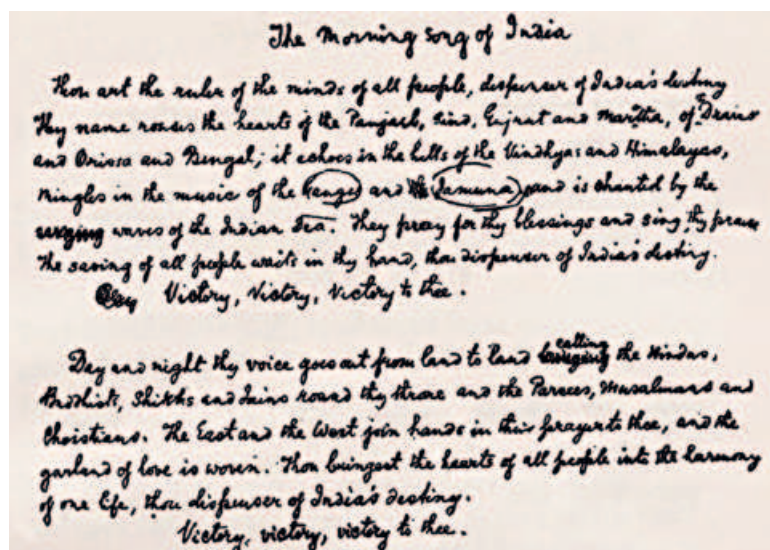 The Morning song of India
Thou art the ruler of the minds of all people, dispenser of India's destiny
Thy name rouses the hearts of the Panjaub, Sind, Gujrat and Maratha, of Dravid
and Orissa and Bengal; it echoes in the hills of the Vindhyas and Himalayas,
mingles in the music of the Ganges and Jamuna and is chanted by the
waves of the Indian Sea. They pray for thy blessings and sing thy praise
The saving of all people waits in thy hand, thou dispenser of India's destiny.
Victory, Victory, Victory to thee.
Day and night thy voice goes out from land to land calling the Hindus,
Buddhists, Shikhs and Jains round thy throne and the Parsees, Musalmans and
Christians. The East and the West join hands in their prayer to thee, and the
garland of love is woven. Thou bringest the hearts of all people into the harmony
of one life, thou dispenser of India's destiny.
Victory, victory, victory to thee.